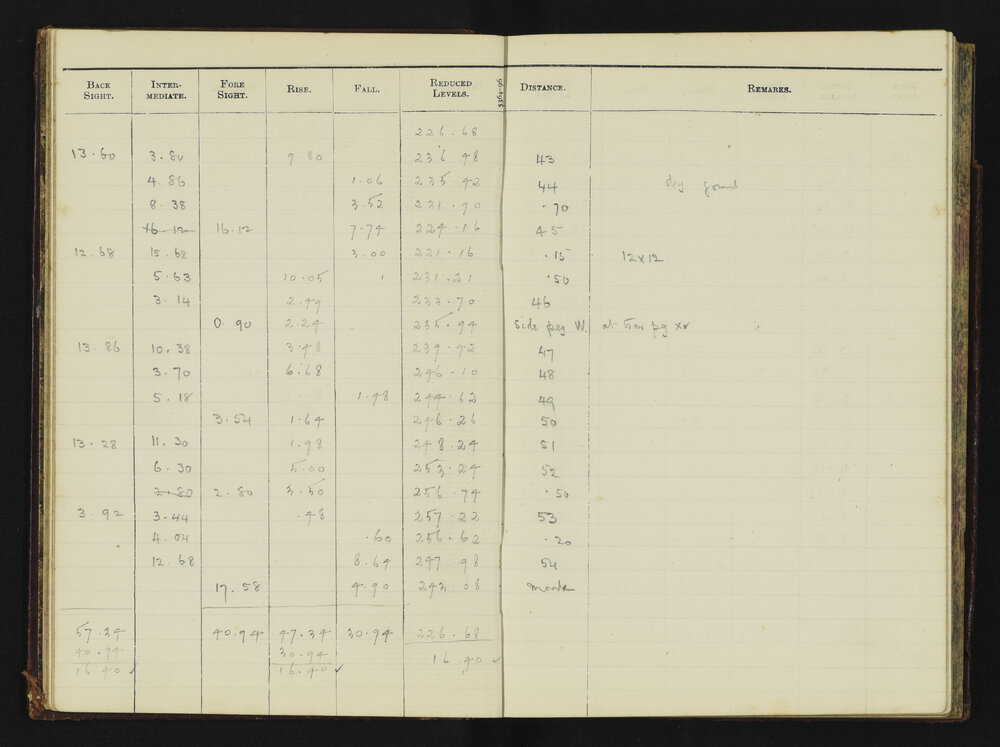 BACK SIGHT. INTER-MEDIATE. FORE SIGHT. RISE. FALL. REDUCED LEVELS. 5364-96 DISTANCE. REMARKS.
226.68
13.60 3.80 9.80 236.48 43
4.86 1.06 235.42 44 dry
8.38 3.52 231.90 .70
16.12 16.12 7.74 224.16 45
12.68 15.68 3.00 221.16 .15 12x12
5.63 10.05 231.21 .50
3.14 2.49 233.70 46
0.90 2.24 235.94 side peg W. at peg
13.86 10.38 3.48 239.42 47
3.70 6.68 246.10 48
5.18 1.48 244.62 49
3.54 1.64 246.26 50
13.28 11.30 1.98 248.24 51
6.30 5.00 253.24 52
2.80 2.80 3.50 256.74 .50
3.92 3.44 .48 257.22 53
4.04 .60 256.62 .20
12.68 8.64 247.98 54
17.58 4.90 243.08
57.34 40.94 47.34 30.94 226.68
40.94 30.94 16.40 ✓
16.40 ✓ 16.40 ✓